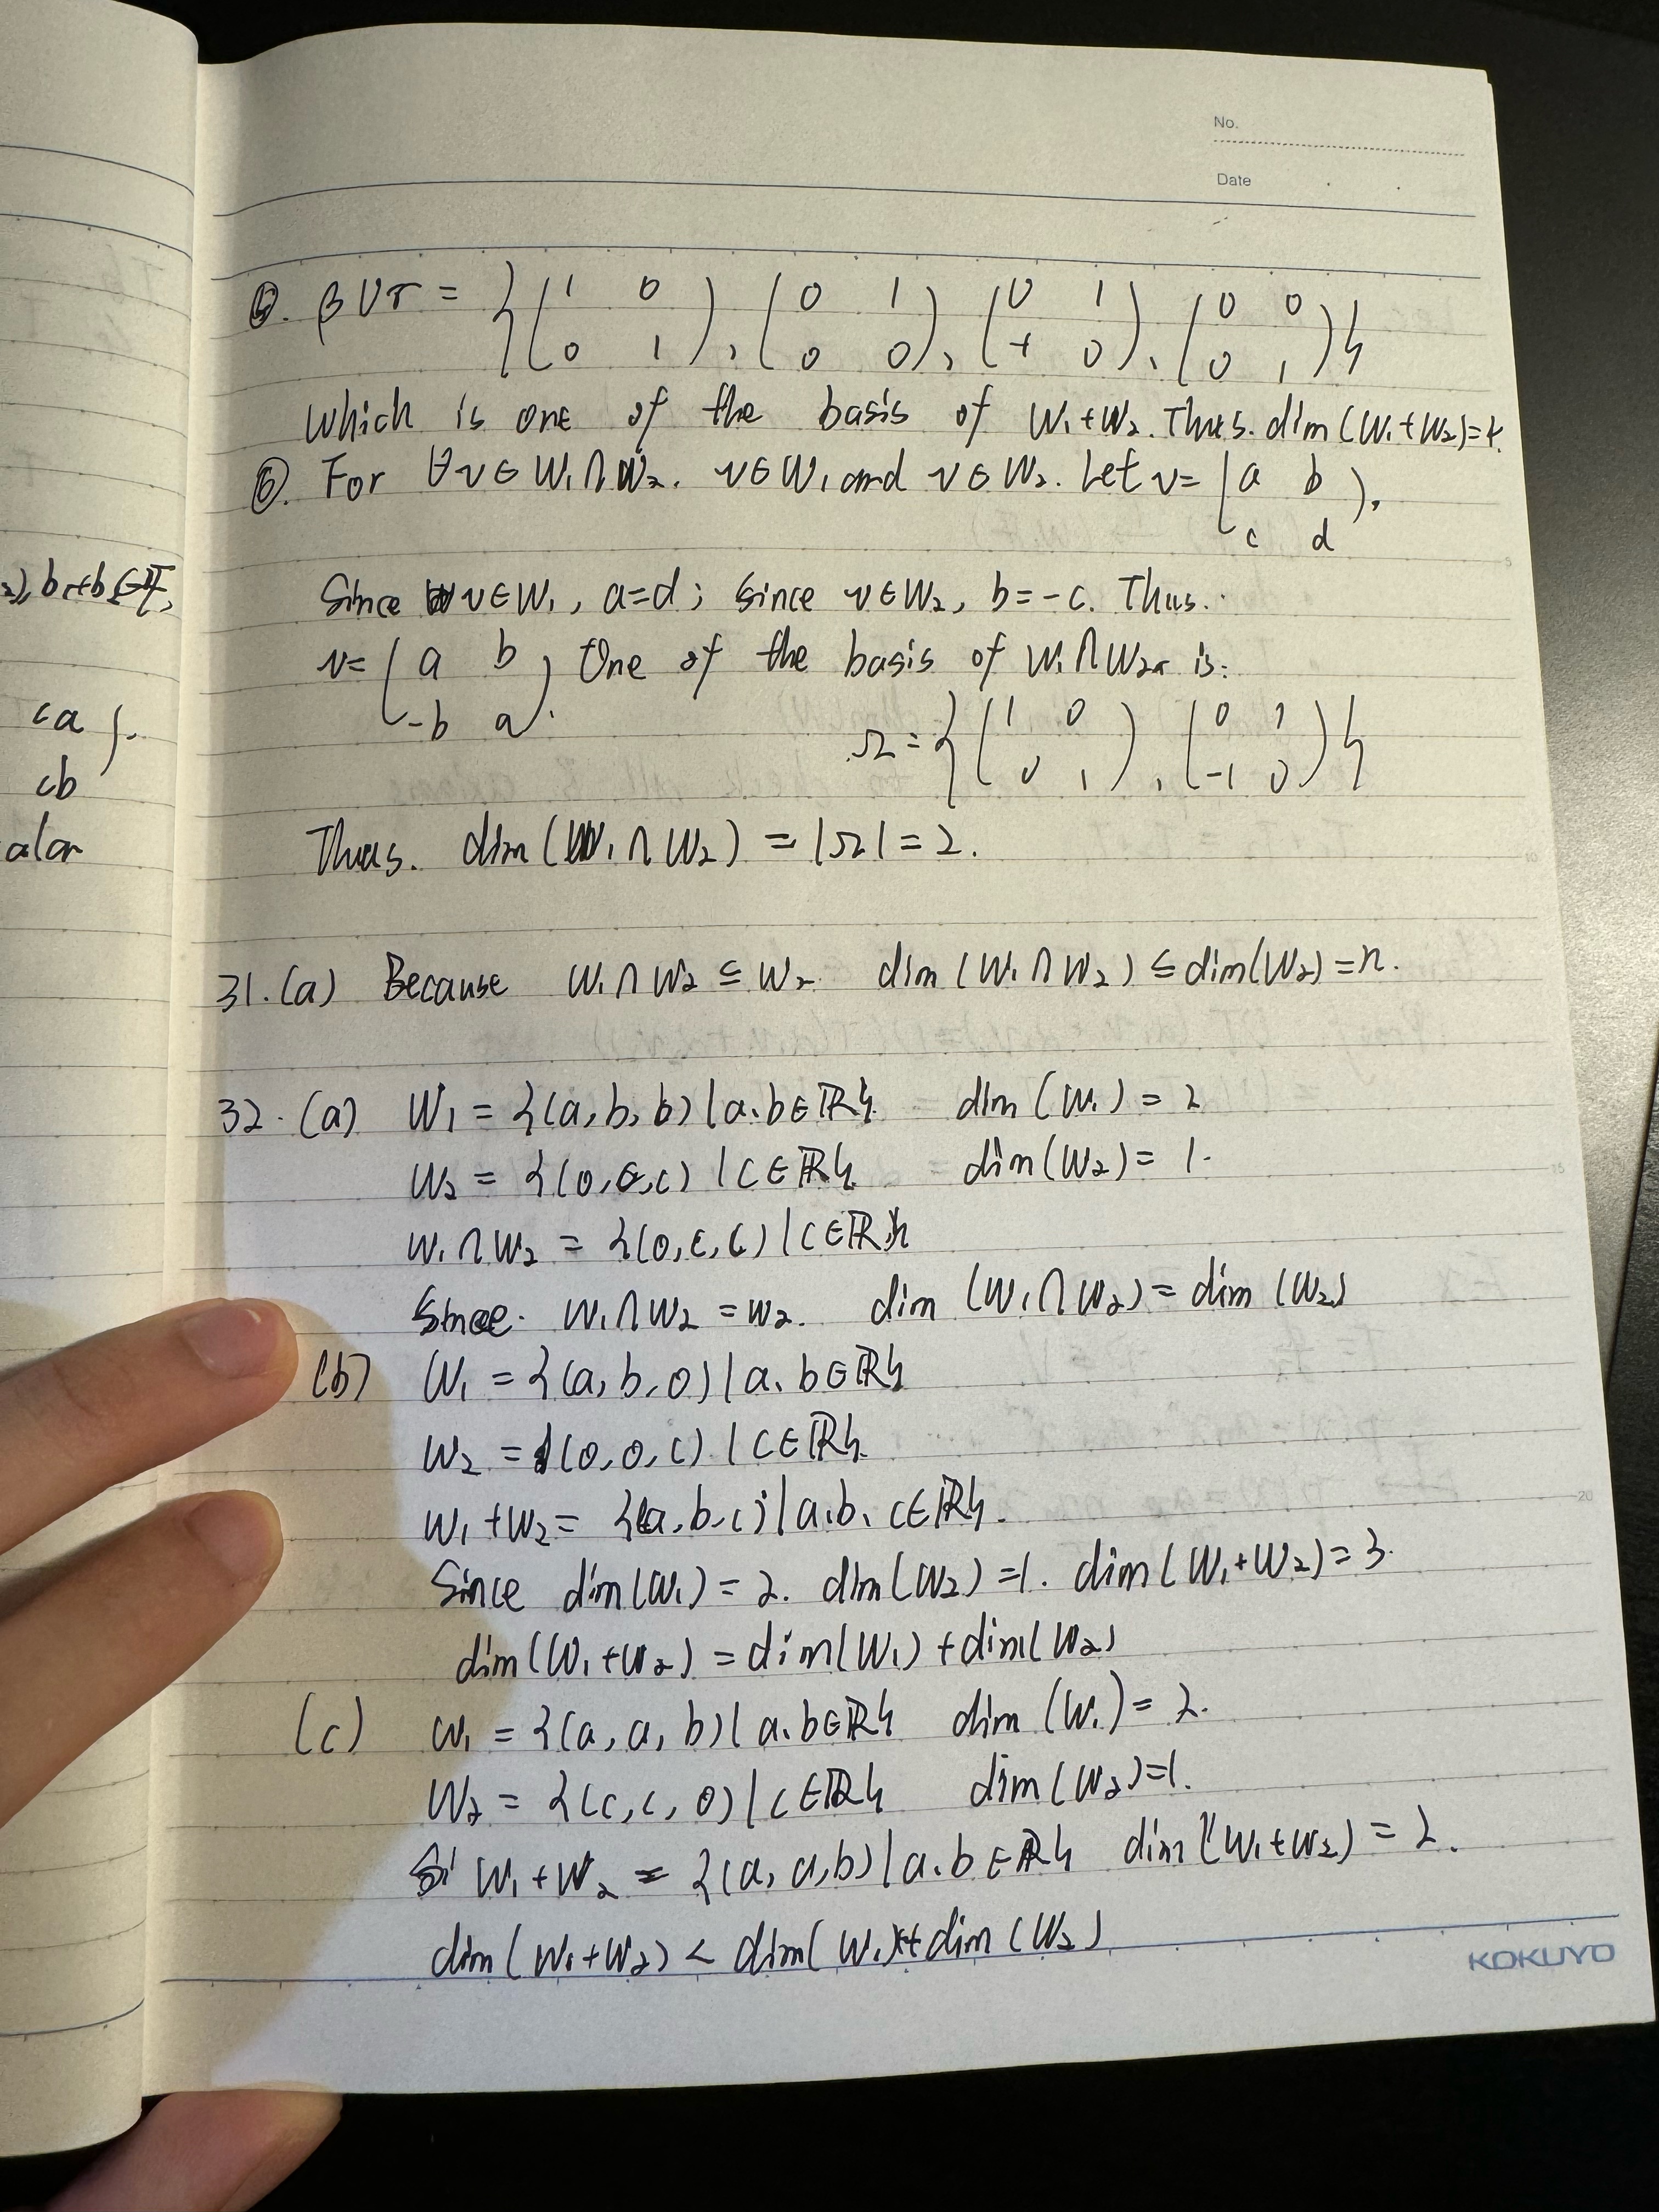 No.
Date
⑤. β∪γ = {(1 0
0 1), (0 1
0 0), (0 1
-1 0), (0 0
0 1)}
Which is one of the basis of W₁+W₂. Thus. dim(W₁+W₂)=4.
⑥. For ∀v∈W₁∩W₂. v∈W₁ and v∈W₂. Let v= (a b
c d).
Since v∈W₁, a=d; since v∈W₂, b=-c. Thus.
v= (a b
-b a). One of the basis of W₁∩W₂ is:
Ω = {(1 0
0 1), (0 1
-1 0)}
Thus. dim(W₁∩W₂) = |Ω| = 2.
31.(a) Because W₁∩W₂ ⊆ W₂ dim(W₁∩W₂) ≤ dim(W₂) = n.
32. (a) W₁ = {(a, b, b) | a. b∈ℝ}. dim(W₁) = 2
W₂ = {(0, c, c) | c∈ℝ}. dim(W₂) = 1.
W₁∩W₂ = {(0, c, c) | c∈ℝ}
Since. W₁∩W₂ = W₂. dim(W₁∩W₂) = dim(W₂)
(b) W₁ = {(a, b, 0) | a. b∈ℝ}
W₂ = {(0, 0, c) | c∈ℝ}.
W₁+W₂ = {(a, b, c) | a. b. c∈ℝ}.
Since dim(W₁) = 2. dim(W₂) = 1. dim(W₁+W₂) = 3.
dim(W₁+W₂) = dim(W₁) + dim(W₂)
(c) W₁ = {(a, a, b) | a. b∈ℝ} dim(W₁) = 2.
W₂ = {(c, c, 0) | c∈ℝ} dim(W₂) = 1.
W₁+W₂ = {(a, a, b) | a. b∈ℝ} dim(W₁+W₂) = 2.
dim(W₁+W₂) < dim(W₁) + dim(W₂)
KOKUYO
ca ).
cb